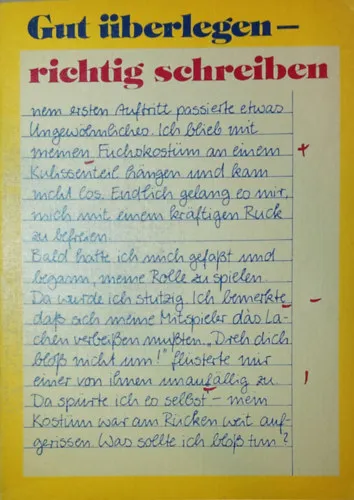 Gut überlegen –
richtig schreiben
nem ersten Auftritt passierte etwas
Ungewöhnliches. Ich blieb mit
meinen Fuchskostüm an einem
Kulissenteil hängen und kam
nicht los. Endlich gelang es mir,
mich mit einem kräftigen Ruck
zu befreien.
Bald hatte ich mich gefaßt und
begann, meine Rolle zu spielen.
Da wurde ich stutzig. Ich bemerkte
daß sich meine Mitspieler das La-
chen verbeißen mußten. „Dreh dich
bloß nicht um!" flüsterte mir
einer von ihnen unaufällig zu.
Da spürte ich es selbst – mein
Kostüm war am Rücken weit auf-
gerissen. Was sollte ich bloß tun?